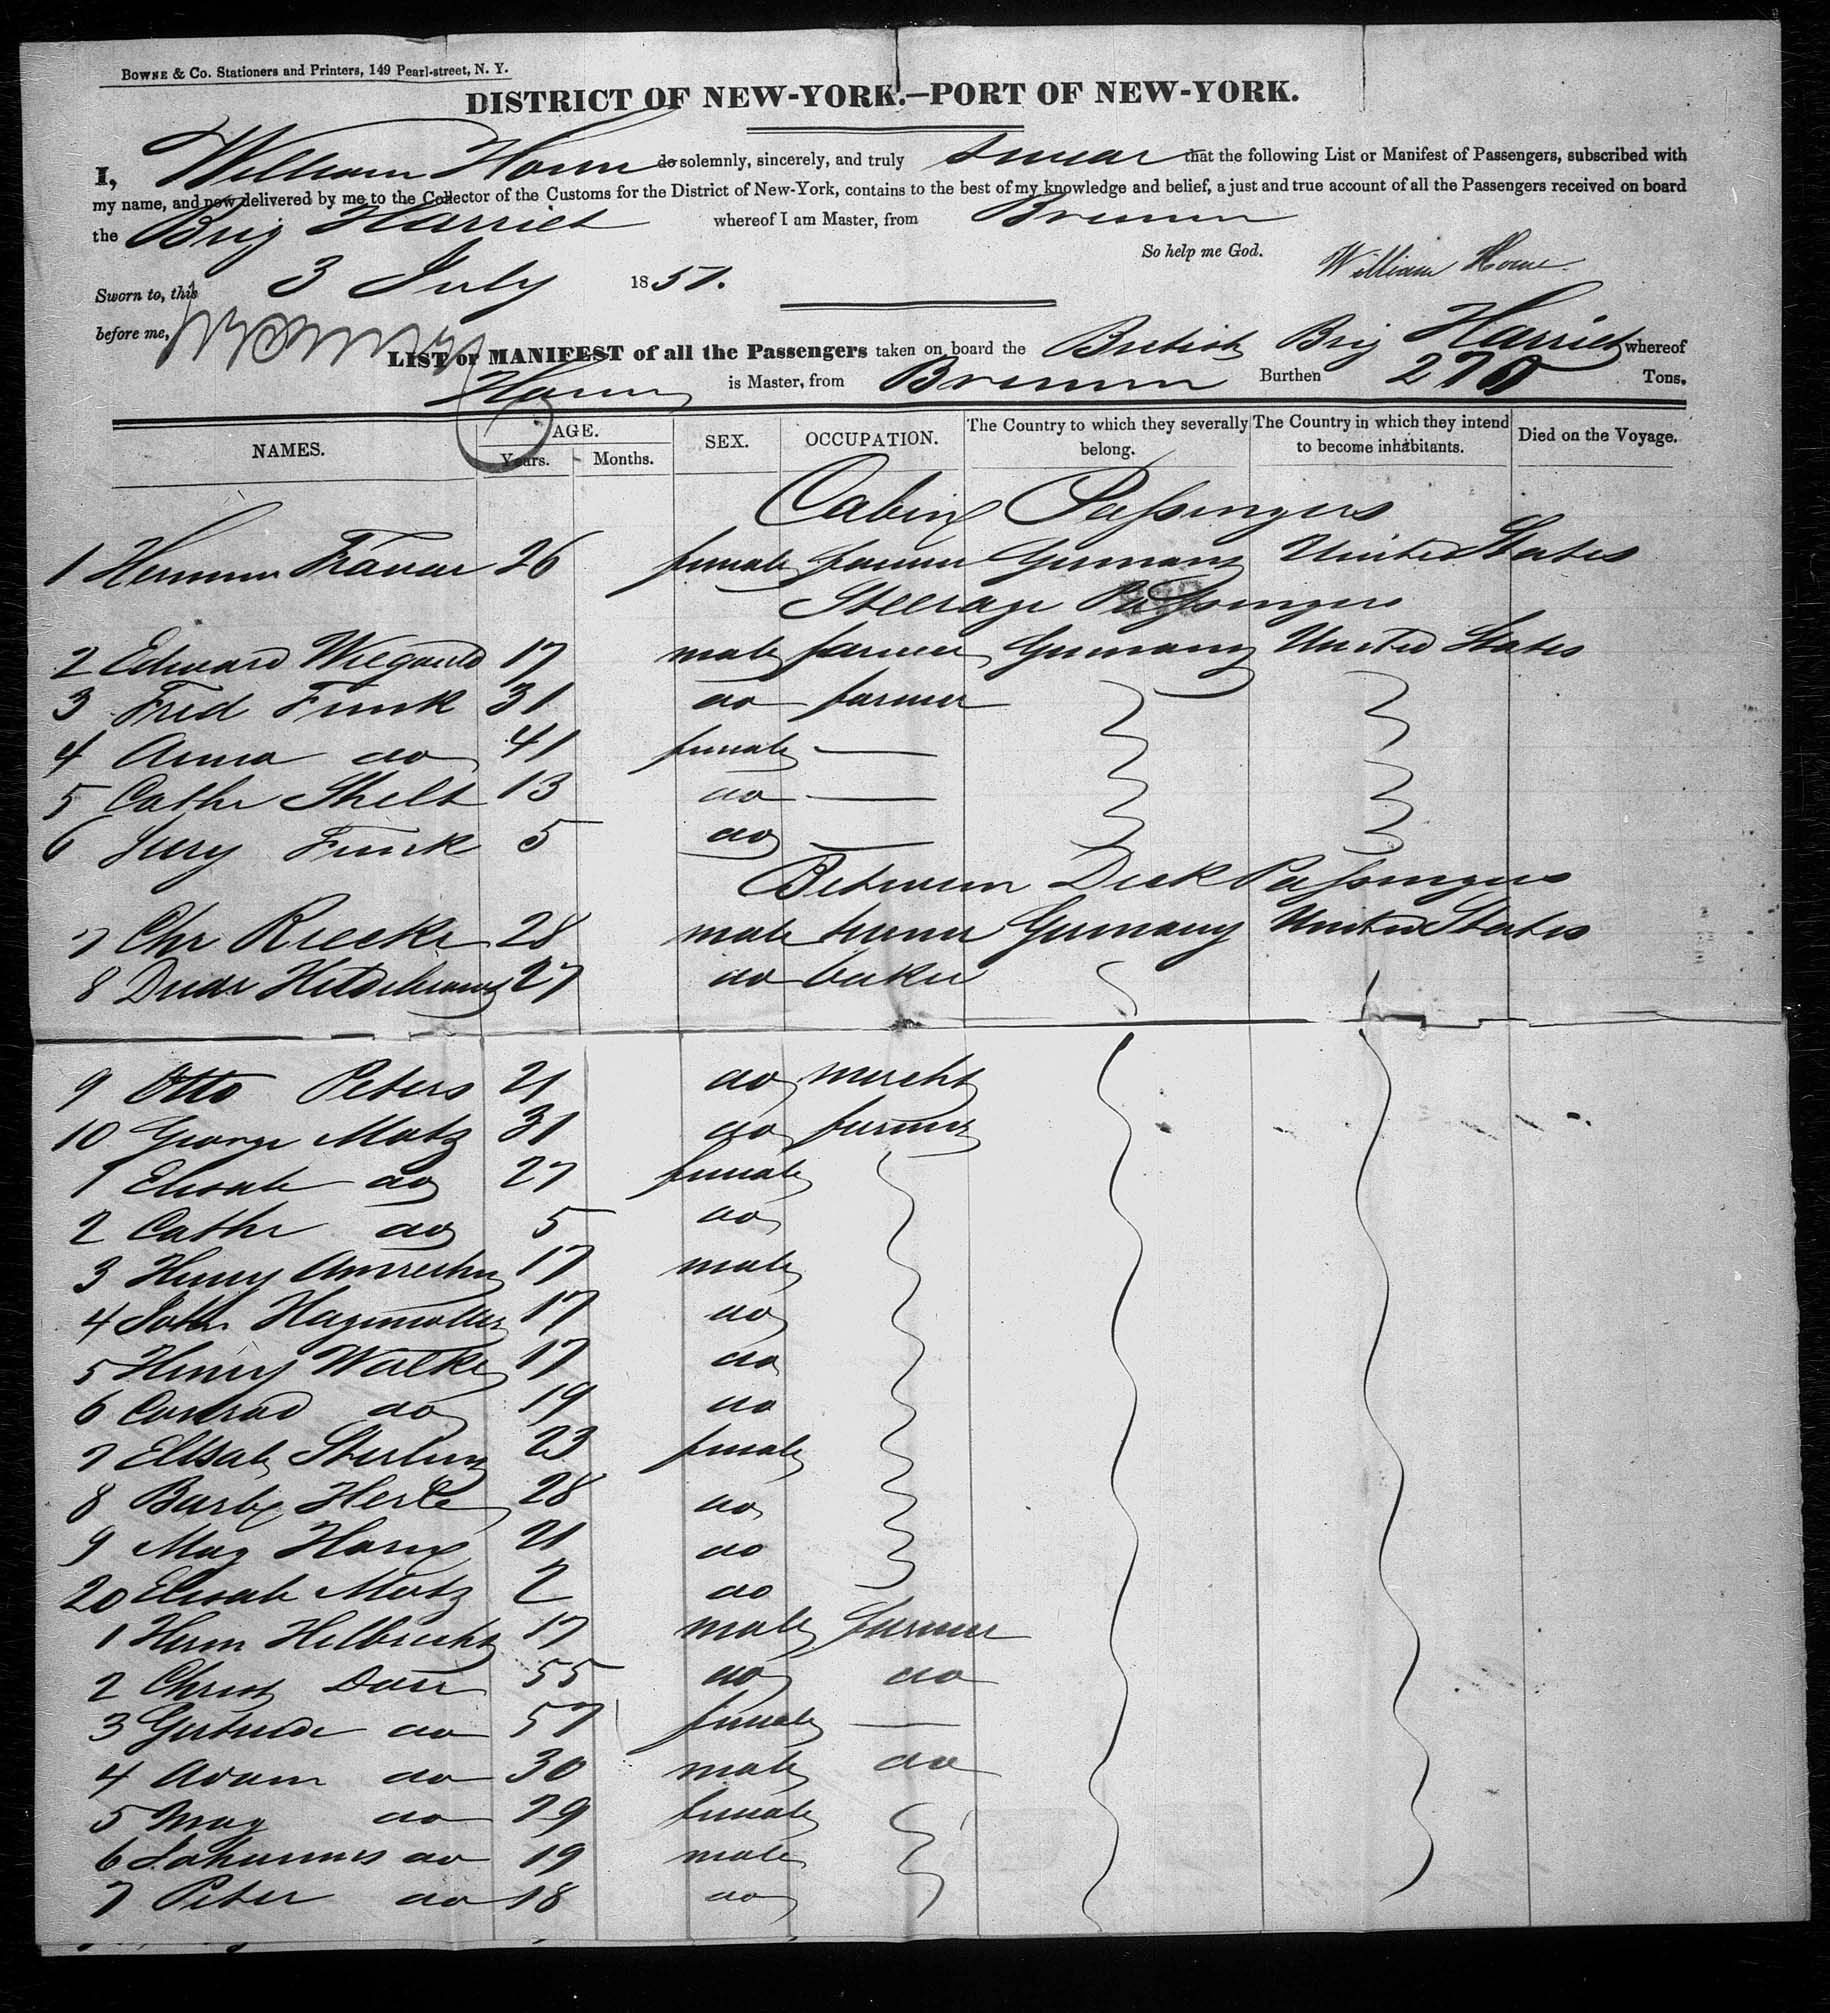 BOWNE & Co. Stationers and Printers, 149 Pearl-street, N. Y.
DISTRICT OF NEW-YORK.—PORT OF NEW-YORK.
I, William Horne do solemnly, sincerely, and truly swear that the following List or Manifest of Passengers, subscribed with
my name, and now delivered by me to the Collector of the Customs for the District of New-York, contains to the best of my knowledge and belief, a just and true account of all the Passengers received on board
the Brig Harriet whereof I am Master, from Bremen
So help me God. William Horne
Sworn to, this 3 July 1851.
before me,
LIST or MANIFEST of all the Passengers taken on board the British Brig Harriet whereof
Horne is Master, from Bremen Burthen 270 Tons.
NAMES. AGE. Years. Months. SEX. OCCUPATION. The Country to which they severally belong. The Country in which they intend to become inhabitants. Died on the Voyage.
Cabin Passengers
1 Herman 26 female farmer Germany United States
Steerage Passengers
2 Edward Wiegand 17 male farmer Germany United States
3 Fred Funk 31 do farmer
4 Anna do 41 female —
5 Cathe 13 do —
6 Funk 5 do —
Between Deck Passengers
7 Chr Riecke 28 male Germany United States
8 Hildebrand 27 do baker
9 Otto Peters 21 do mercht
10 George Motz 31 do farmer
1 Elisab do 27 female
2 Cathe do 5 do
3 Henry 17 male
4 Joh. Hagemoller 17 do
5 Henry Walke 17 do
6 Conrad do 19 do
7 Elisab 23 female
8 Barb 28 do
9 Mag 21 do
20 Elisab Motz 2 do
1 Herm Helbrecht 17 male farmer
2 Christ Dorr 55 do do
3 Gertrude do 57 female —
4 Adam do 30 male do
5 Mag do 29 female
6 Johannes do 19 male
7 Peter do 18 do